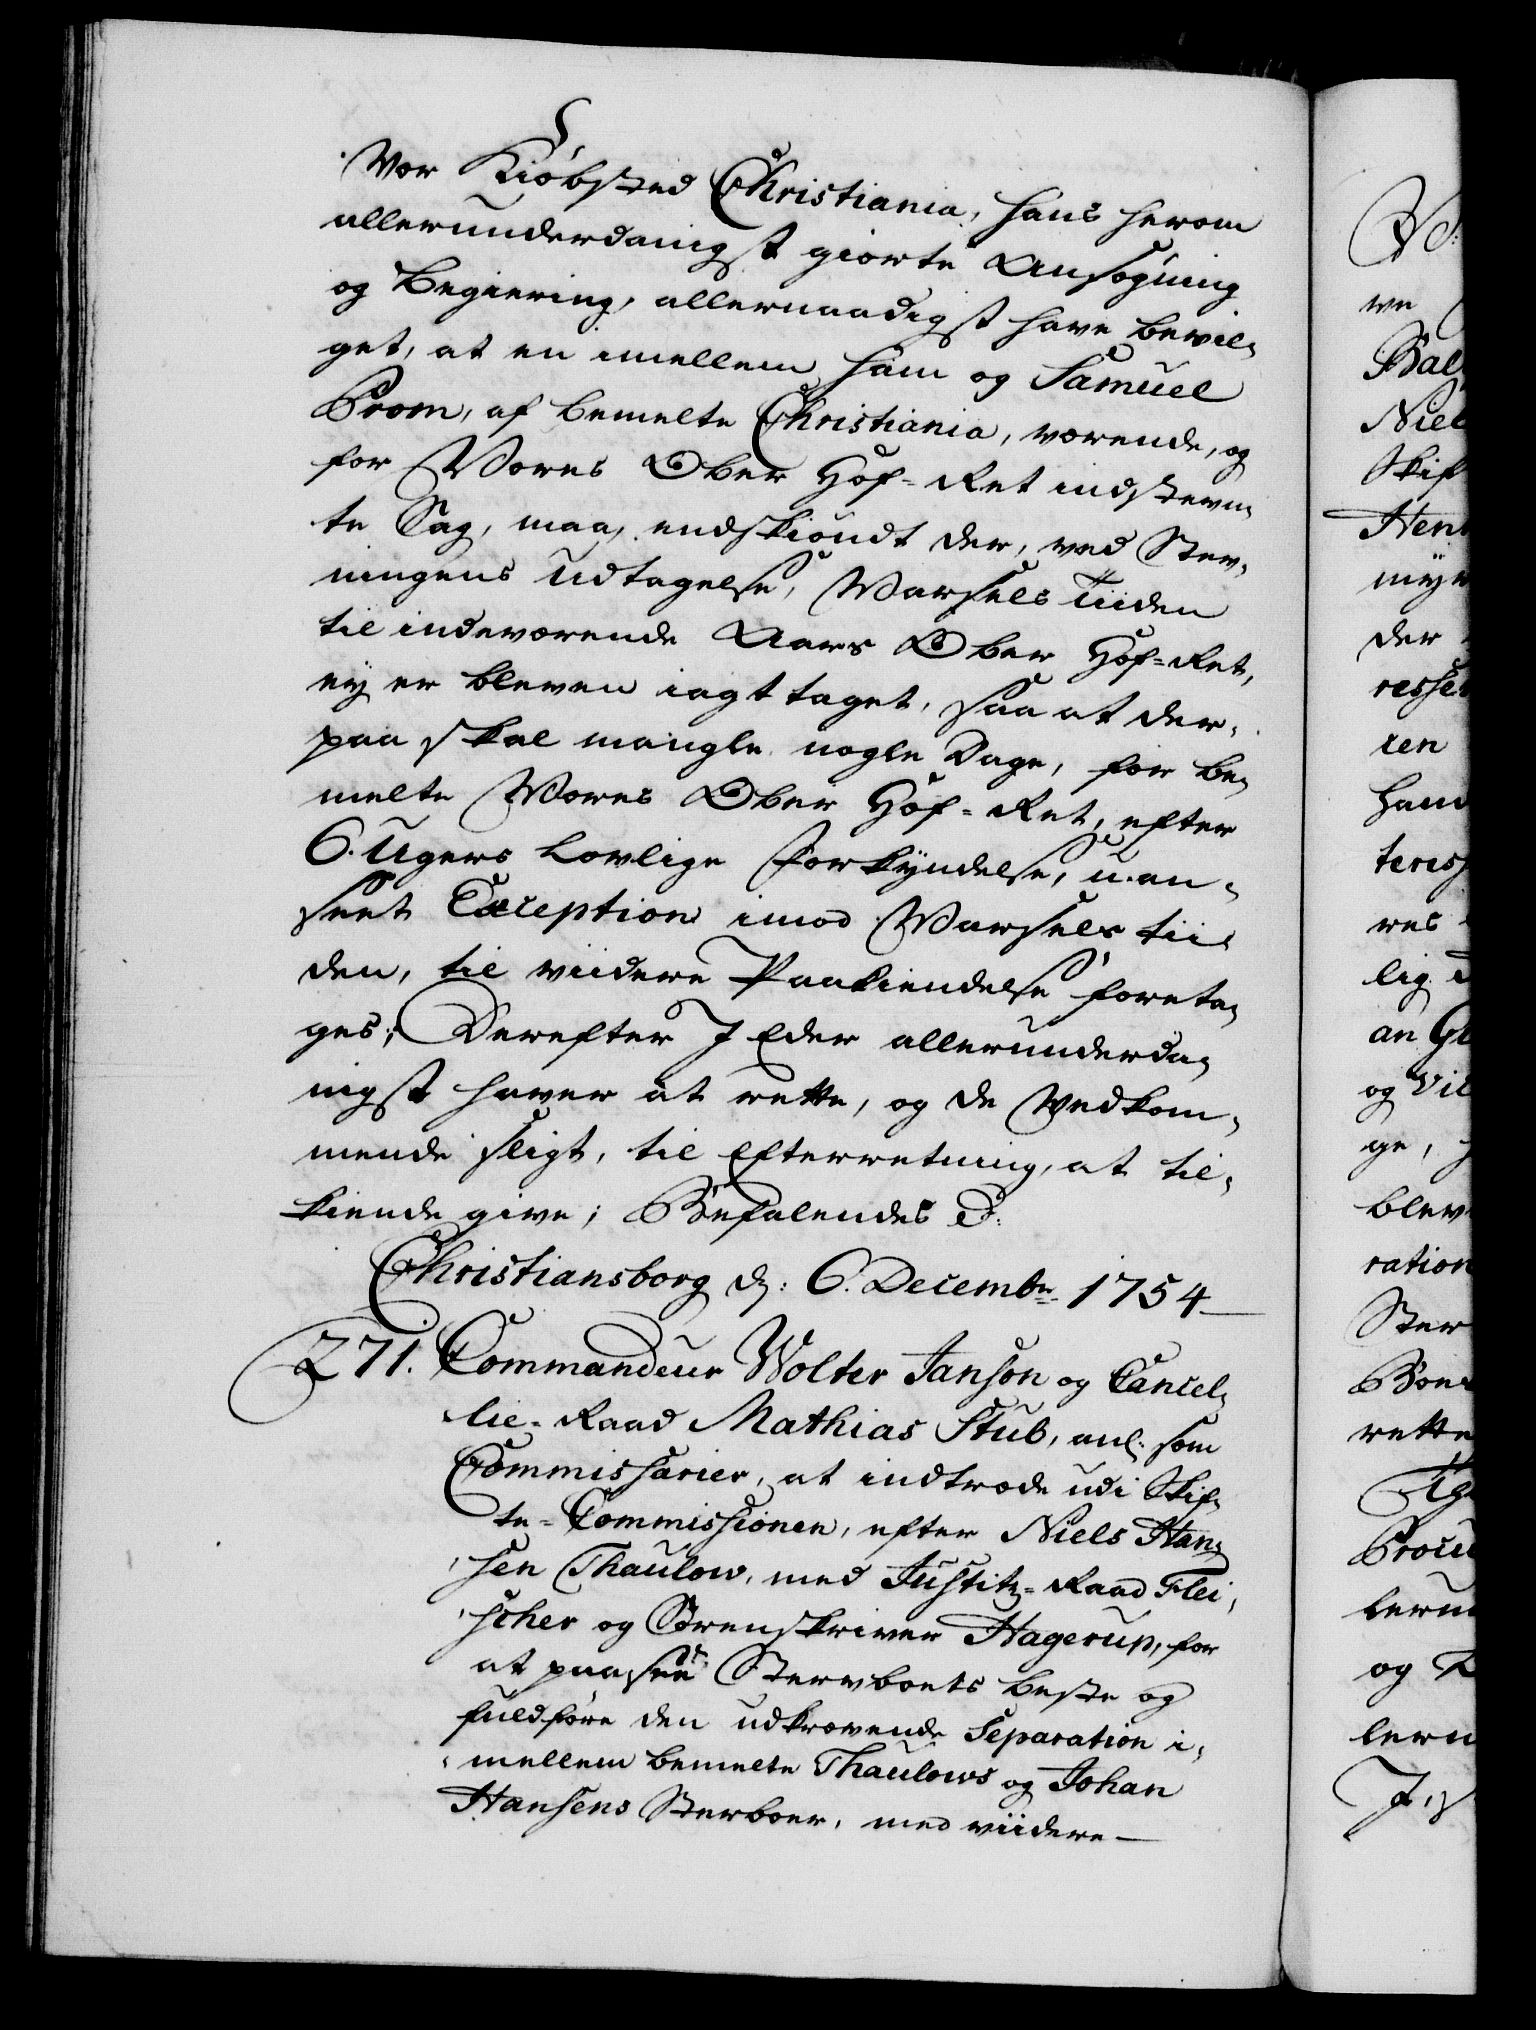 Vor Kiöbsted Christiania, hans herom
allerunderdanigst giorte Ansögning
og Begiering, allernaadigst have bevil-
get, at en imellem ham og Samuel
Brom, af bemelte Christiania, værende, og
for Vores Ober Hof-Ret indstevn-
te Sag, maa, endskiöndt der, ved Stev-
ningens Udtagelse, Varsels Tiiden
til indeværende Aars Ober Hof-Ret,
ey er bleven iagttaget, saa at der-
paa skal mangle nogle Dage, for be-
melte Vores Ober Hof-Ret, efter
6. Ugers Lovlige Forkyndelse, u-an-
seet Exception imod Varsels tii-
den, til viidere Paakiendelse foreta-
ges; Derefter I Eder allerunderda-
nigst haver at rette, og de Vedkom-
mende sligt, til Efterretning, at til-
kiende give; Befalendes &:
Christiansborg d: 6. Decembr 1754
271. Commandeur Wolter Janson og Cancel-
lie-Raad Mathias Stub, anl: som
Commissarier, at indtræde udi Skif-
te-Commissionen, efter Niels Han-
sen Thaulow, med Justitz-Raad Flei-
scher og Sörenskriver Hagerup, for
at paasee Stervboets beste og
fuldföre den udkrævende Separation i-
mellem bemelte Thaulows og Johan
Hansens Sterboer, med viidere
ve
Bal
Niel
Skif
Hen
der
ren
res
lig
an Gl
og Vil
ge,
blev
ration
Stev
rette
Procu
og